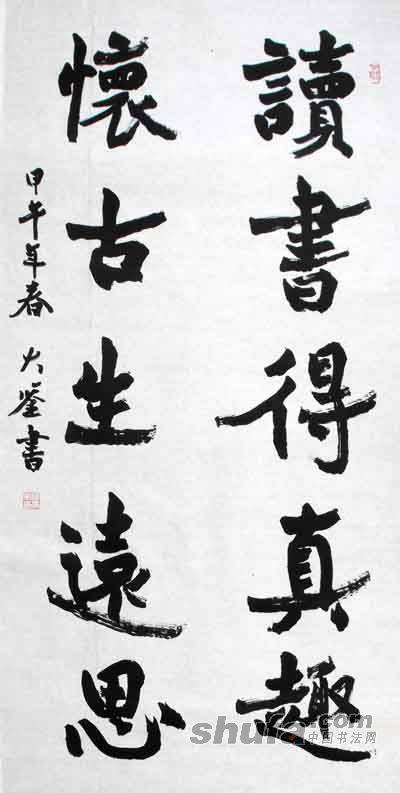 讀書得真趣
懷古生遠思
甲午年春 大鉴書
shufa.com
中国书法网